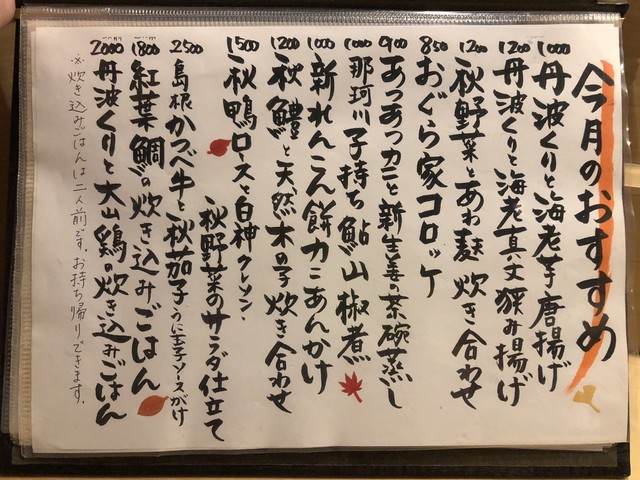 今月のおすすめ
1000 丹波くりと海老芋唐揚げ
1200 丹波くりと海老真丈狭み揚げ
1200 秋野菜とあわ麩炊き合わせ
850 おぐら家コロッケ
900 あつあつカニと新生姜の茶碗蒸し
1000 那珂川子持ち鮎山椒煮
1000 新れんこん餅カニあんかけ
1200 秋鱧と天然木の子炊き合わせ
1500 秋鴨ロースと白神クレソン、
秋野菜のサラダ仕立て
2500 島根かつべ牛と秋茄子うに玉子ソースがけ
1800 紅葉鯛の炊き込みごはん
2000 丹波くりと大山鶏の炊き込みごはん
※炊き込みごはんは二人前です。お持ち帰りできます。